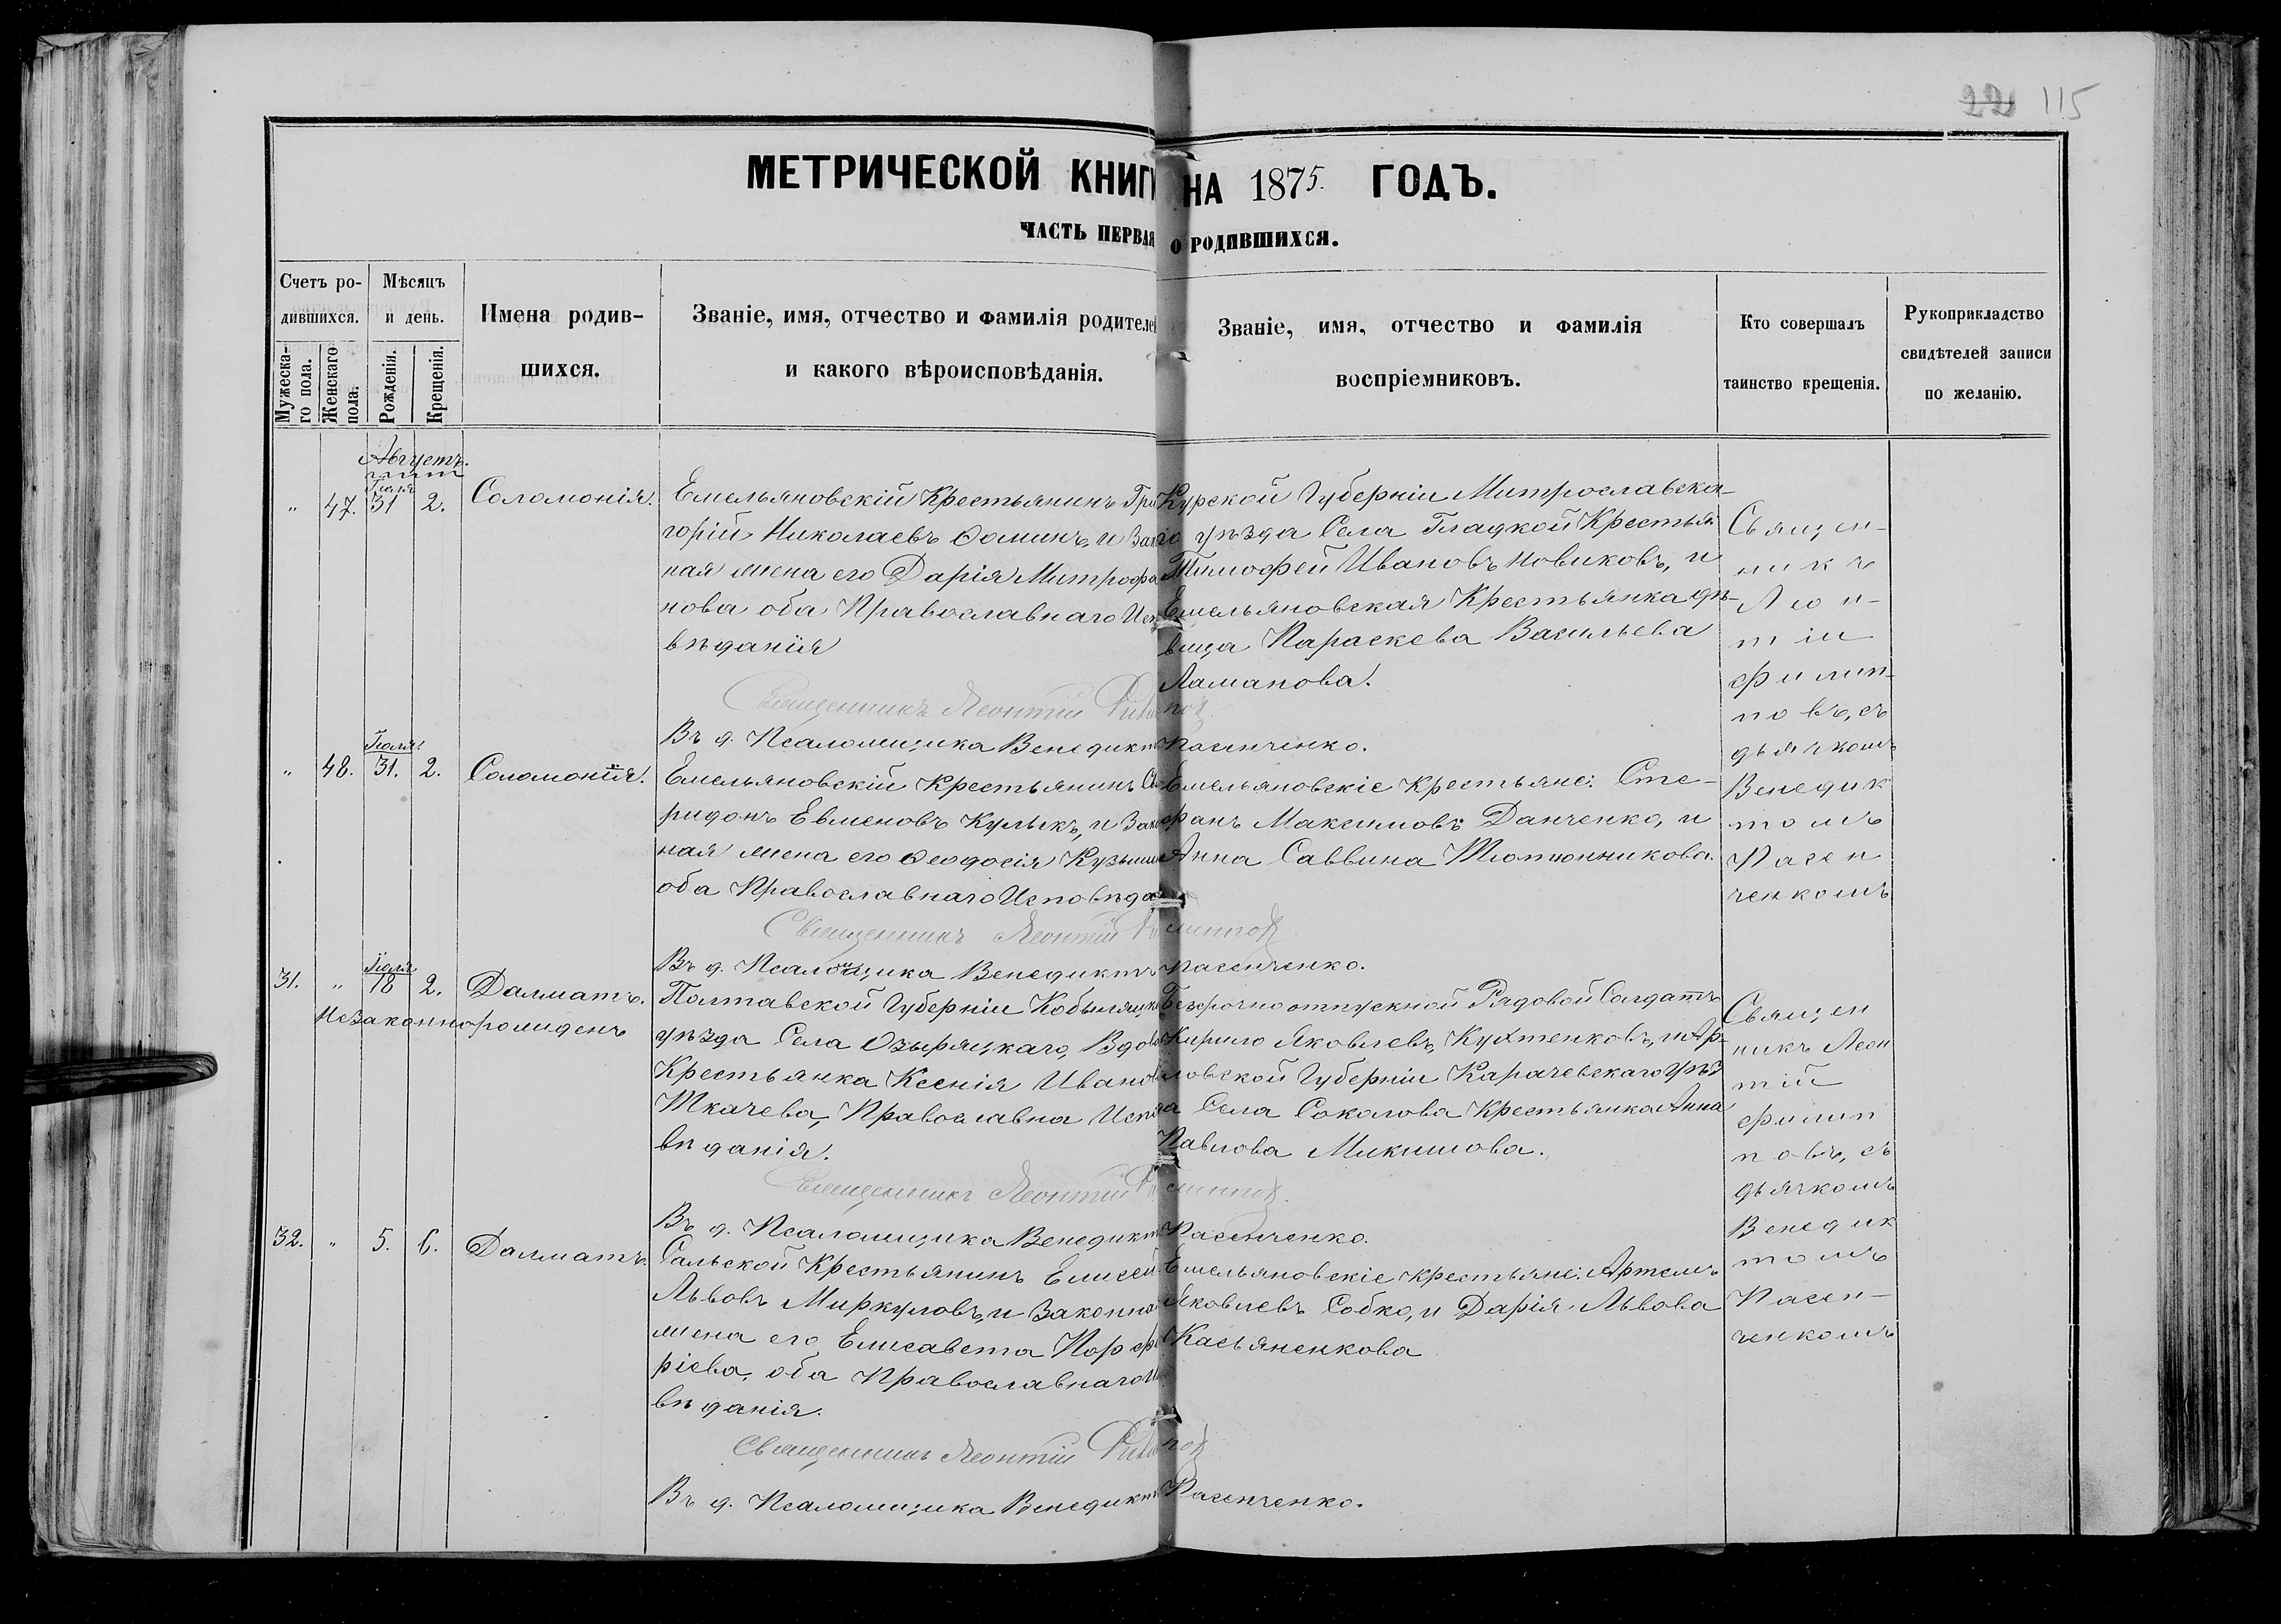 22 115
МЕТРИЧЕСКОЙ КНИГИ НА 1875. ГОДЪ.
ЧАСТЬ ПЕРВАЯ О РОДИВШИХСЯ.
Счетъ ро-
дившихся.
Мужеска-
го пола.
Женскаго
пола.
Мѣсяцъ
и день.
Рожденія.
Крещенія.
Имена родив-
шихся.
Званіе, имя, отчество и фамилія родителей
и какого вѣроисповѣданія.
Званіе, имя, отчество и фамилія
воспріемниковъ.
Кто совершалъ
таинство крещенія.
Рукоприкладство
свидѣтелей записи
по желанію.
Августъ.
Іюля
" 47. 31 2. Соломонія.
Емельяновскій Крестьянинъ Гри
горій Николаевъ Ѳоминъ, и Закон
ная жена его Дарія Митрофа
нова оба Православнаго Испо
вѣданія
Священникъ Леонтій Филиппов
Въ д. Псаломщика Венедиктъ Пасенченко.
Курской Губерніи Митрославска-
го уѣзда Села Гладкой Крестьян
Тимофей Ивановъ Новиковъ, и
Емельяновская Крестьянка дѣ-
вица Параскева Васильева
Ламанова.
Священ-
никъ
Леон-
тій
Филип-
повъ, съ
дьячкомъ
Венедик
томъ
Пасен
ченкомъ
Іюля
" 48. 31. 2. Соломонія.
Емельяновскій Крестьянинъ Спи
ридонъ Евменовъ Кулыкъ, и Закон
ная жена его Ѳеодосія Кузьмина
оба Православнаго Исповѣданія
Священникъ Леонтій Филиппов
Въ д. Псаломщика Венедиктъ Пасенченко.
Емельяновскіе Крестьяне: Сте-
фанъ Максимовъ Данченко, и
Анна Саввина Тютюнникова.
Іюля
31. " 18 2. Далматъ.
Незаконнорожденъ
Полтавской Губерніи Кобыляцка
уѣзда Села Озыряцкаго, Вдова
Крестьянка Ксенія Иванова
Ткачева, Православна Испо
вѣданія.
Священникъ Леонтій Филиппов.
Въ д. Псаломщика Венедиктъ Пасенченко.
Безсрочноотпускной Рядовой Солдатъ
Кирило Яковлевъ, Кухтенковъ, и Ор-
ловской Губерніи Карачевскаго уѣз
да Села Соколова Крестьянка Анна
Павлова Микишова.
Священ
никъ Леон
тій
Филип
повъ, съ
дьячкомъ
Венедик
томъ
Пасен-
ченкомъ
32. " 5. 6. Далматъ.
Сальской Крестьянинъ Елисей
Львовъ Миркуловъ, и Законная
жена его Елисавета Порфи
ріева, оба Православнаго Испо
вѣданія.
Священникъ Леонтій Филиппов
Въ д. Псаломщика Венедиктъ Пасенченко.
Емельяновскіе крестьяне: Артемъ
Яковлевъ Собко, и Дарія Львова
Касьяненкова